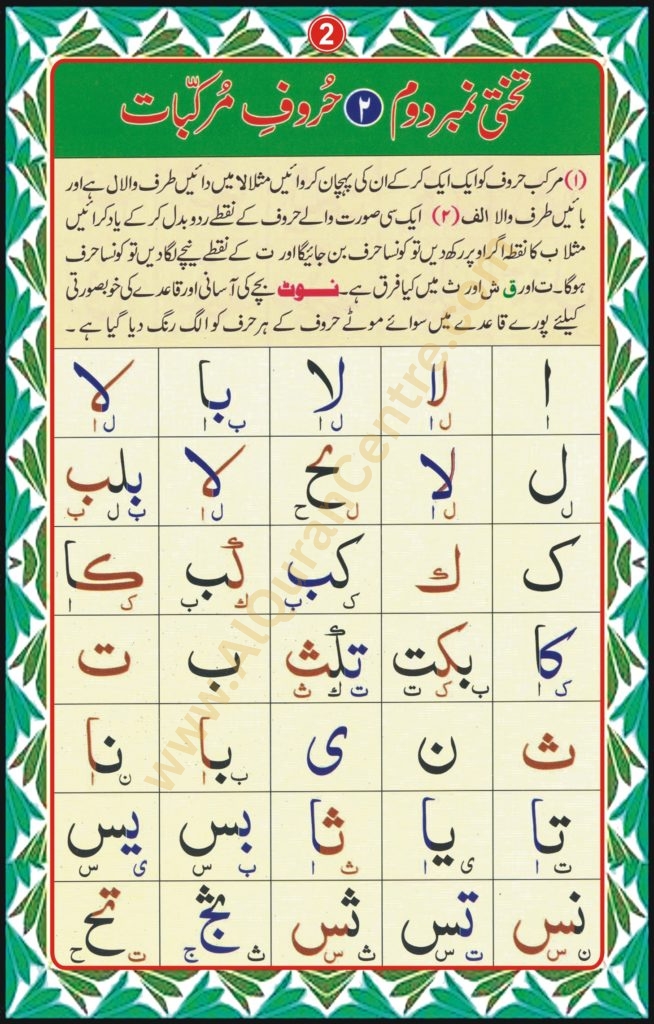 2
تختی نمبر دوم ۲ حُروفِ مُرکبّات
(۱) مرکب حروف کو ایک ایک کر کے ان کی پہچان کروائیں مثلا لا میں دائیں طرف والا ل ہے اور
بائیں طرف والا الف (۲) ایک سی صورت والے حروف کے نقطے ردوبدل کر کے یاد کرائیں
مثلا ب کا نقطہ اگر اوپر رکھ دیں تو کونسا حرف بن جائیگا اور ت کے نقطے نیچے لگا دیں تو کونسا حرف
ہوگا۔ ت اور ق ش اور ث میں کیا فرق ہے۔ نوٹ بچے کی آسانی اور قاعدے کی خوبصورتی
کیلئے پورے قاعدے میں سوائے موٹے حروف کے ہر حرف کو الگ رنگ دیا گیا ہے ۔
ا لا لا با لا
ل ا ل ا ب ا ل ا
ل لا لح لا بلب
ل ل ا ل ح ل ا ب ل ب
ک ك کب كب كا
ک ب ك ب ک ا
کا بکت تكث ب ت
ک ا ب ک ت ت ك ث
ث ن ی با نا
ب ا ن ا
تا يا ثا بس یس
ت ا ی ا ث ا ب س ی س
نس تس ثس ثج تح
ن س ت س ث س ث ج ت ح
www.AlQuranCentre.com